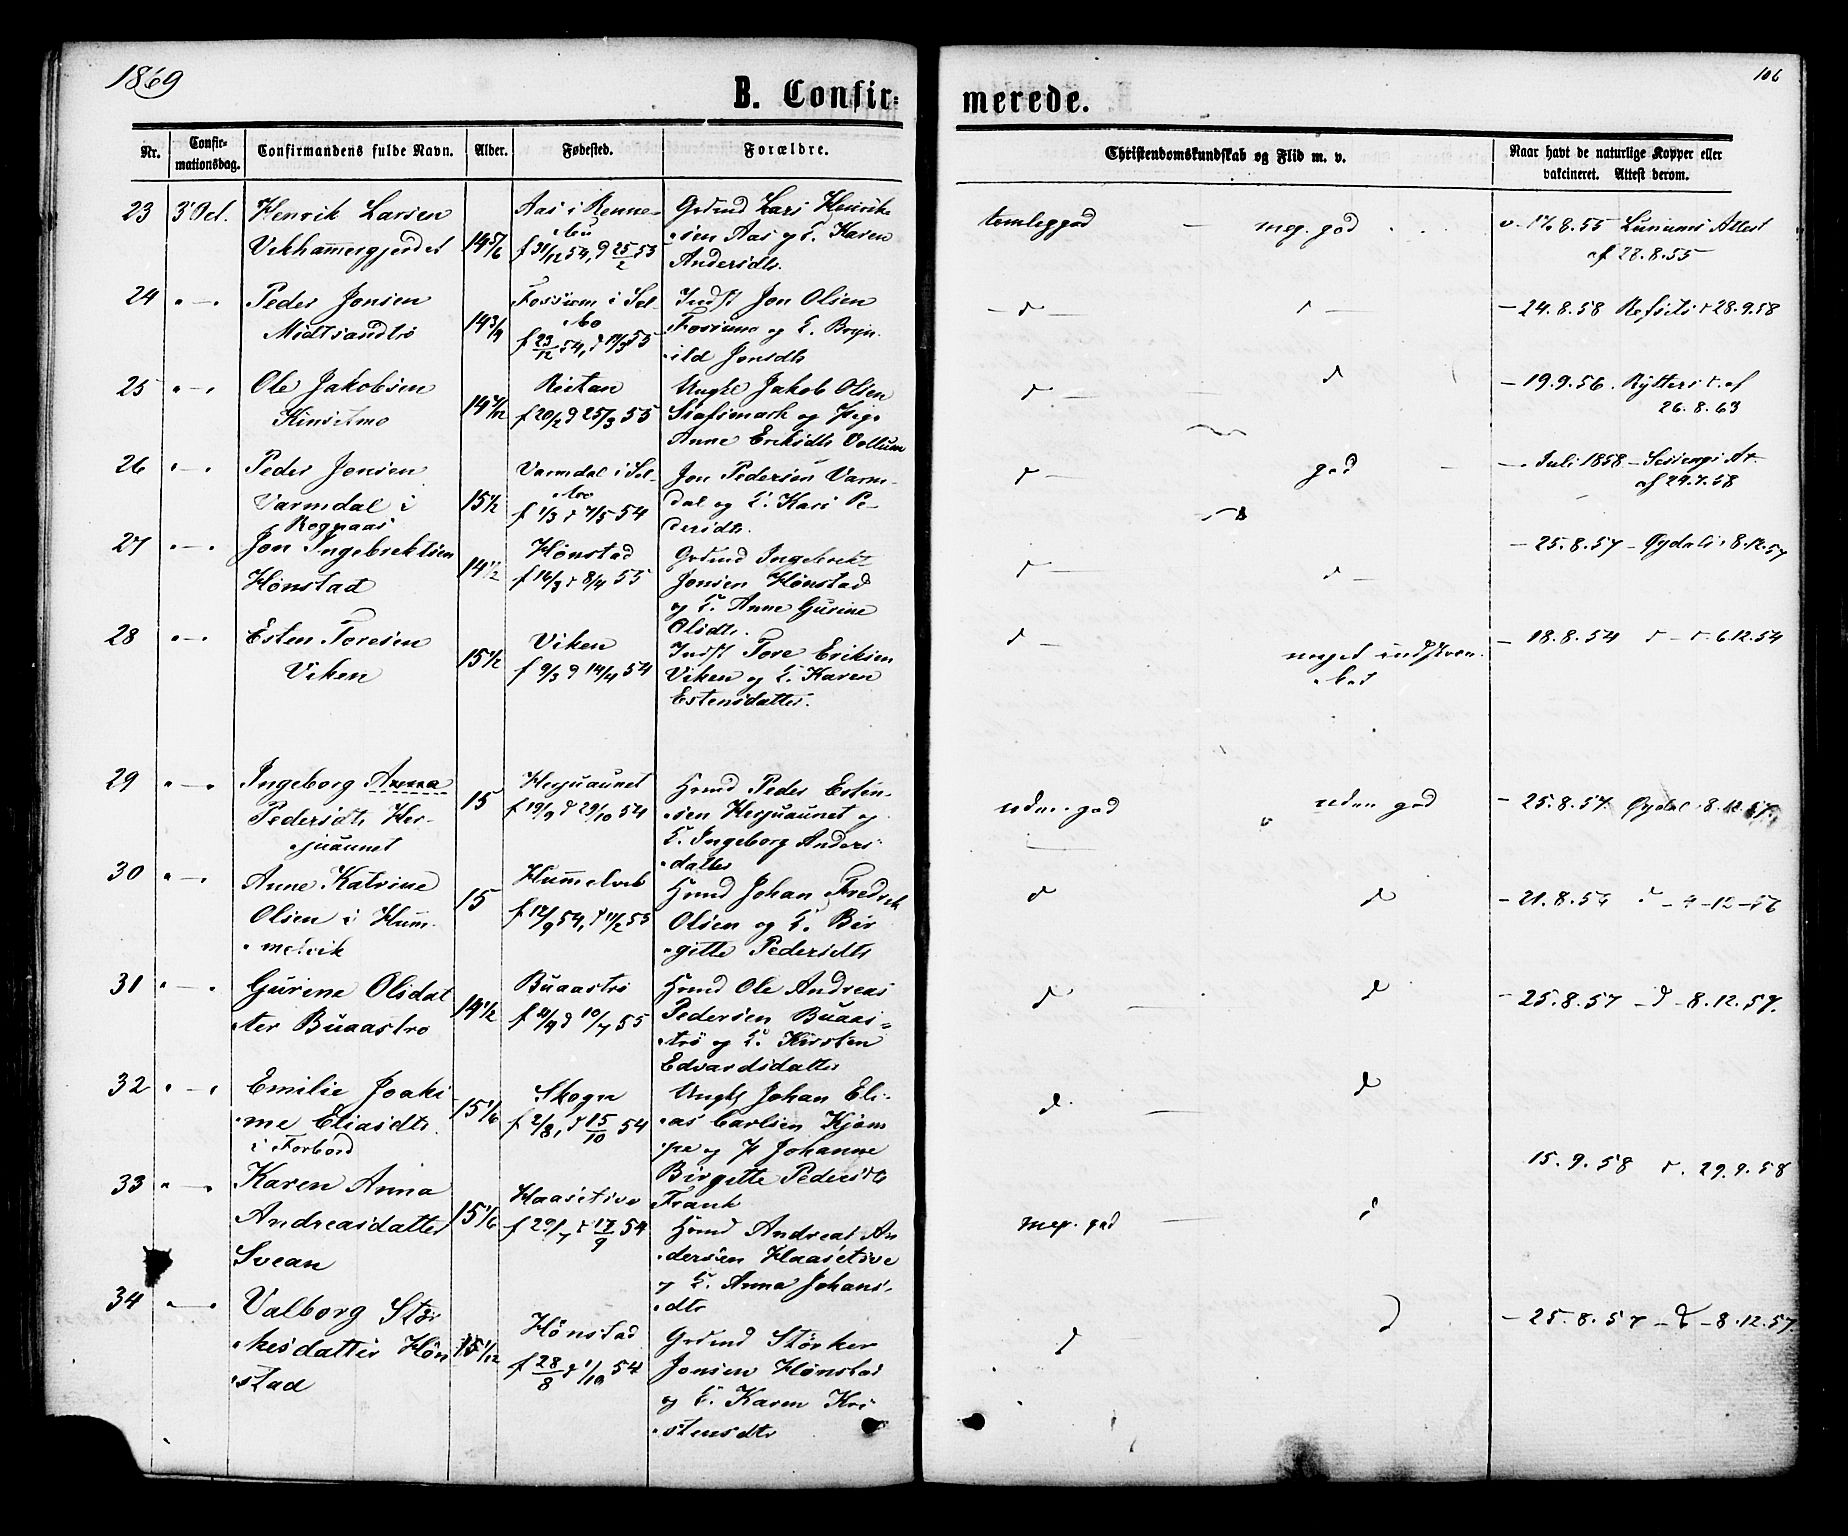 1869
106
B. Confir-
merede.
Nr.
Confir-
mationsdag.
Confirmandens fulde Navn.
Alder.
Fødested.
Forældre.
Christendomskundskab og Flid m. v.
Naar havt de naturlige Kopper eller
vakcineret. Attest derom.
23 3' Oct. Henrik Larsen
Vikhammergjerdet
14 5/6
Aas i Renne-
bu
f 31/12 54, d 25/2 55
Grdmd Lars Henrik-
sen Aas og H. Karen
Andersdtr.
temleg god — meg. god
v. 17/6.8.55 Lunums Attest
af 28.8.55
24 " — " Peder Jonsen
Midtsandtrø
14 3/4
Fossum i Sel-
bo
f 23/12 54, d 11/3 55
Indst Jon Olsen
Fossum og H. Bryn-
ild Jonsdtr
— d — d —
— 24.8.58 Refseths d 28.9.58
25 " — " Ole Jakobsen
Kinsetmo
14 7/12
Reitan
f 20/2 d 25/3 55
Ungkl Jakob Olsen
og Pige
Anne Eriksdtr Vollum
d — d
— 19.9.56. Rytters d. af
26.8.63
26 " — " Peder Jonsen
Varmdal i
Rognaas
15 1/2
Varmdal i Sel-
bo
f 1/3 d 7/5 54
Jon Pedersen Varm-
dal og H. Kari Pe-
dersdtr.
d — god
— Juli 1858 —
af 29.7.58
27 " — " Jon Ingebrektsen
Hønstad
14 1/2
Hønstad
f 16/3 d 8/4 55
Grdmd Ingebrekt
Jonsen Hønstad
og H. Anne Gurine
Olsdtr.
d — d —
— 25.8.57 — Øydals 8.12.57
28 " — " Esten Toresen
Viken
15 1/2
Viken
f 9/3 d 14/4 54
Indst Tore Eriksen
Viken og H. Karen
Estensdatter.
d — meget indskræn-
ket
— 18.8.54 d — d. 6.12.54
29 " — " Ingeborg Anna
Pedersdtr Her-
juaunet
15
Herjuaunet
f 19/9 d 29/10 54
Hmd Peder Esten-
sen Herjuaunet og
H. Ingeborg Anders-
datter
udm. god udm god
— 25.8.57. Øydal 8.12.57.
30 " — " Anne Katrine
Olsen i Hum-
melvik
15
Hummelvik
f 12/9 54, d 11/2 55
Hmd Johan Fredrik
Olsen og H. Bir-
gitte Pedersdtr
d d
— 21.8.56 d — 4-12-56
31 " — " Gurine Olsdat-
ter Buaastrø
14 1/2
Buaastrø
f 21/4 d 10/7 55
Hmd Ole Andreas
Pedersen Buaas-
trø og H. Kirsten
Edvardsdatter
d — d
— 25.8.57 — d — 8.12.57.
32 " — " Emilie Joaki-
me Eliasdtr.
i Forbord
15 1/6
Skogn
f 2/8, d 15/10 54
Ungkl Johan Eli-
as Carlsen Kjøm-
pe og P Johanne
Birgitte Pedersdtr
Frank
d. — d
15.9.58 d. 29.9.58
33 " — " Karen Anna
Andreasdatter
Svean
15 1/6
Haasetive
f 29/7 d 17/9 54
Hmd Andreas An-
dersen Haasetive
og H. Anna Johans-
dtr
meg. god — d
34 " — " Valborg Stør-
kersdatter Høn-
stad
15 1/12
Hønstad
f 28/8 d 1/10 54
Grdmd Størker
Jonsen Hønstad
og H. Karen Kri-
stensdtr
d d
— 25.8.57 — d — 8.12.57.